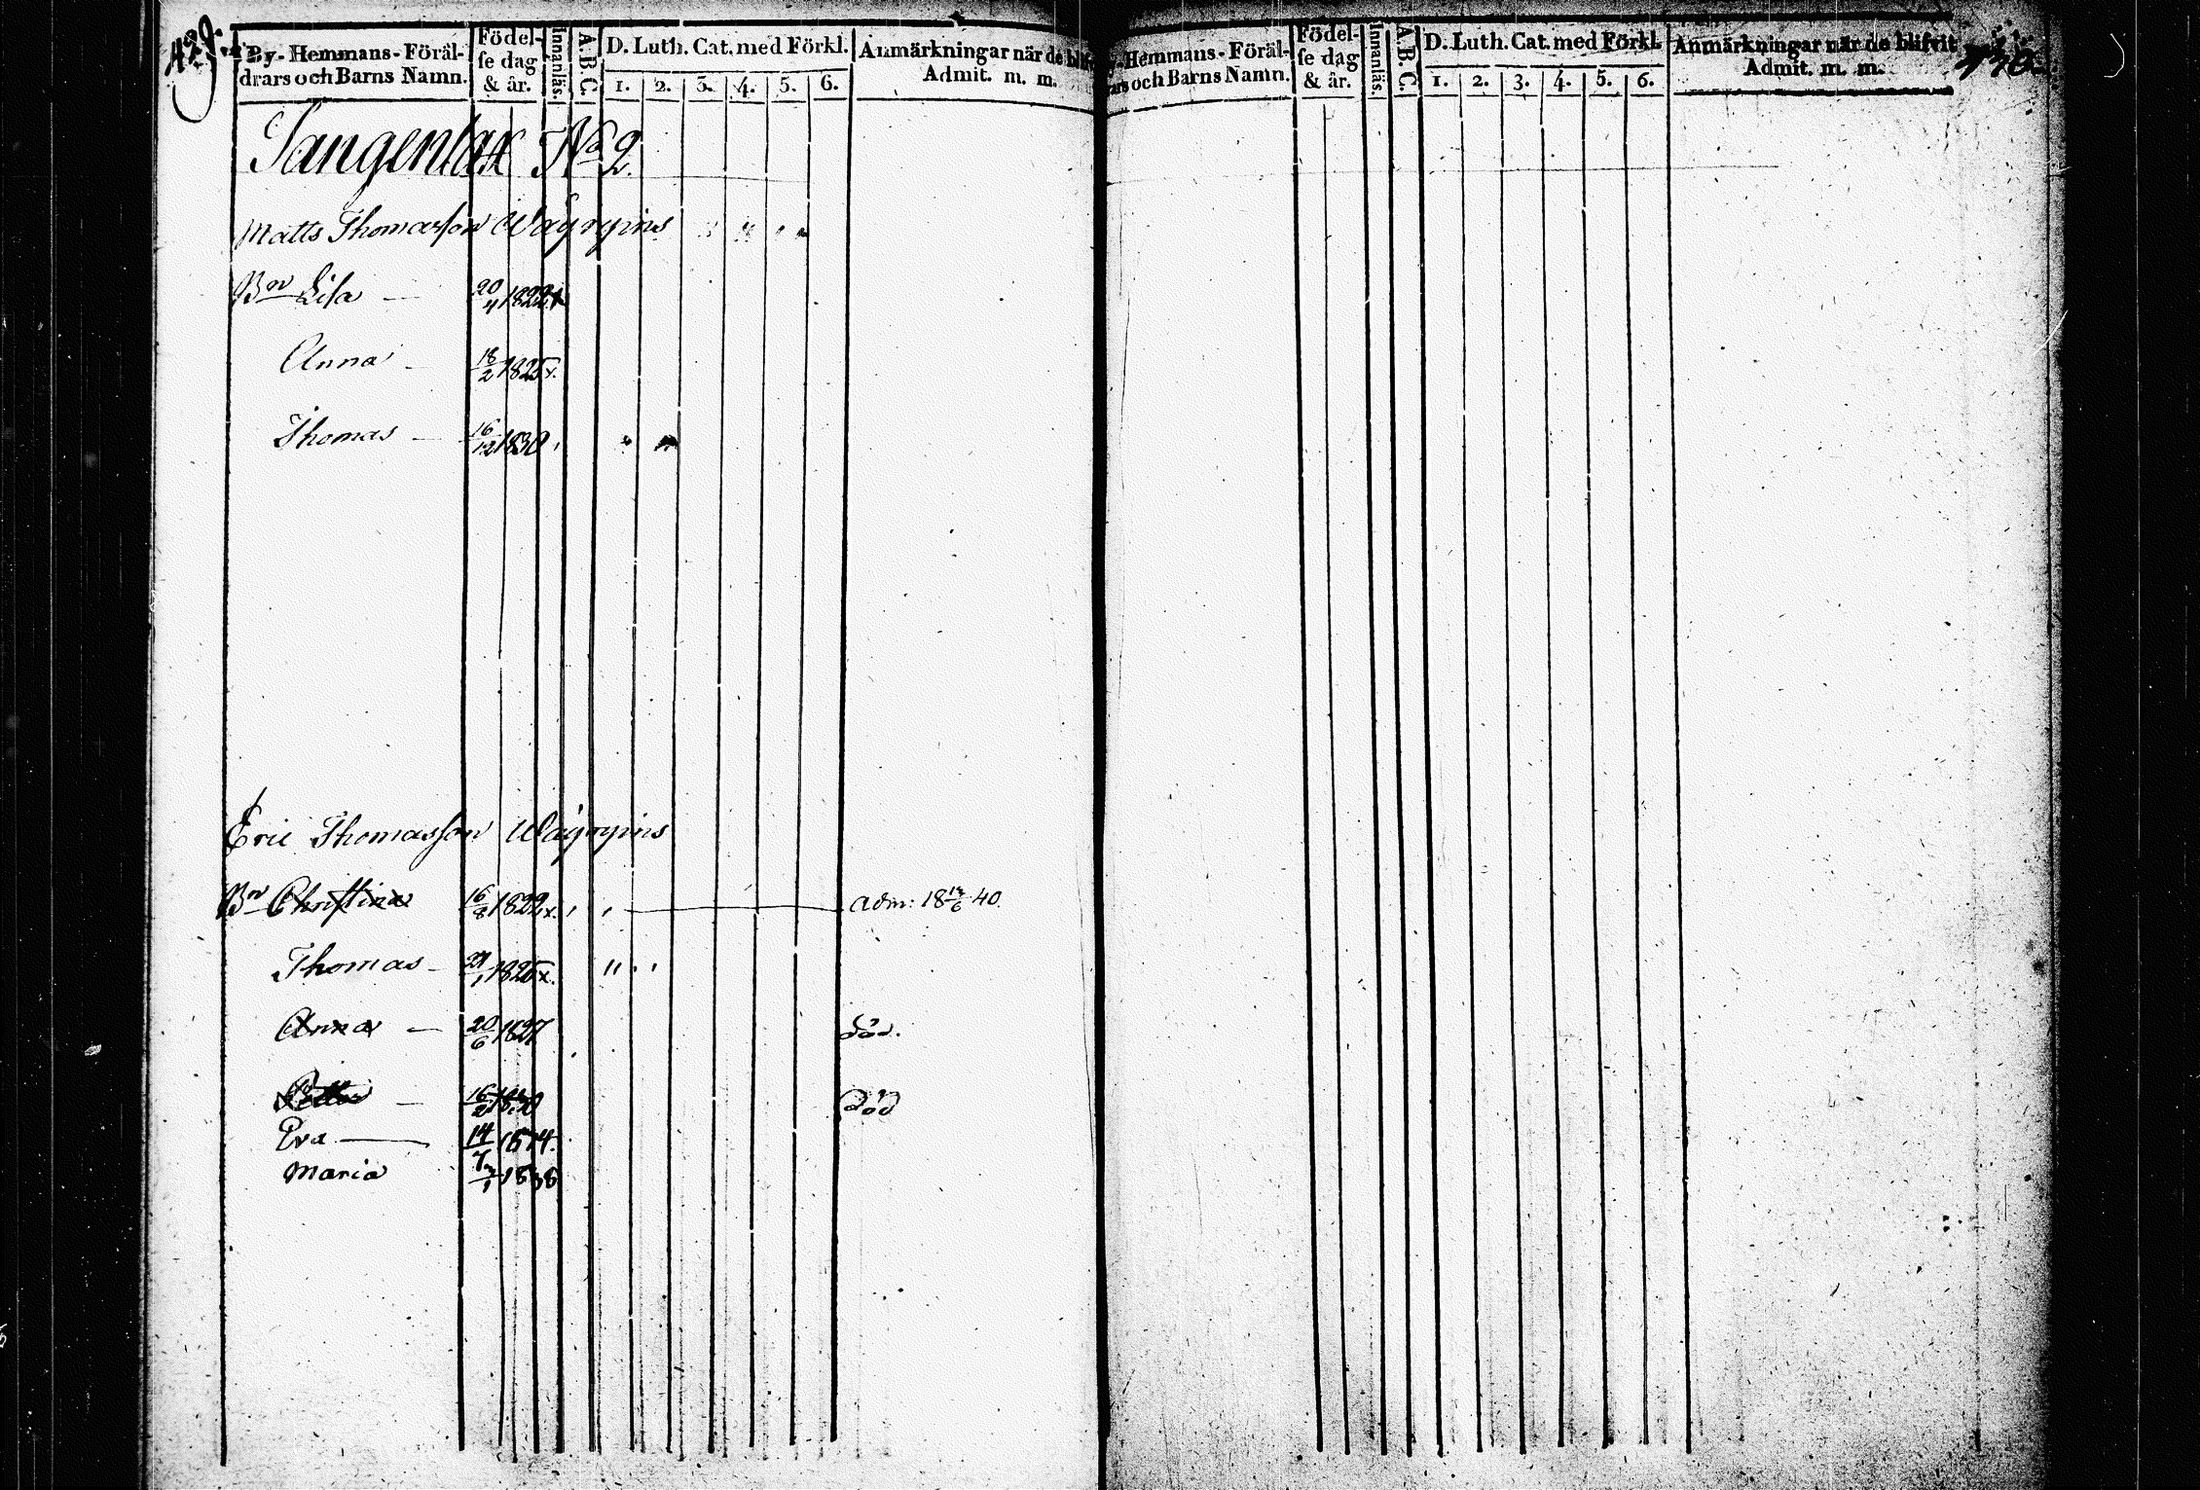 429.
By- Hemmans- Föräl-
drars och Barns Namn.
Födel-
se dag
& år.
Innanläs.
A.B.C.
D. Luth. Cat. med Förkl.
1. 2. 3. 4. 5. 6.
Anmärkningar när de blif
Admit. m. m.
Tangentax No 2.
Matts Thomasson Wågryins
Bn Lisa — 20/4 1822 x
Anna — 18/2 1825 x.
Thomas — 16/12 1830
Eric Thomasson Wågryins
Bn Christina 16/8 1822 x. Adm: 18 14/6 40.
Thomas — 1825 x.
Anna — 20/6 1827 död.
Petter — 16/2 1830 död
Eva — 14/7
Maria 1838
y- Hemmans- Föräl-
rars och Barns Namn.
Födel-
se dag
& år.
Innanläs.
A.B.C.
D. Luth. Cat. med Förkl.
1. 2. 3. 4. 5. 6.
Anmärkningar när de blifvit
Admit. m. m.
430.